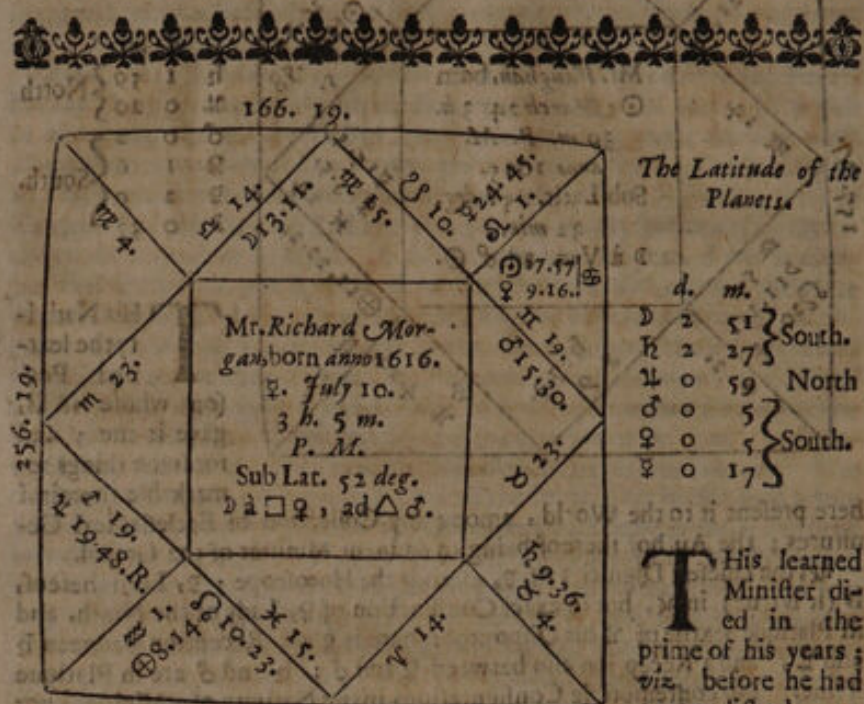 166. 19.
♍ 4.
♎ 14.
☽ 13. 11.
♍ 15.
☋ 10.
☿ 24. 45.
♌ 1.
☉ 27. 57
♀ 9. 16.
⊕
♊ 19.
♂ 15. 30.
♉ 23.
♄ 9. 36.
♉ 4.
♈ 14.
♓ 15.
☊ 10. 23.
♑ 1.
⊕ 8. 14
♐ 19.
♃ 19 48. R.
256. 19.
♏ 23.
Mr. Richard Mor-
gan, born anno 1616.
☿. July 10.
3 h. 5 m.
P. M.
Sub Lat. 52 deg.
☽ à □ ♀, ad △ ♂.
The Latitude of the
Planets.
d. m.
☽ 2 51 } South.
♄ 2 27
♃ 0 59 North
♂ 0 5
♀ 0 5 } South.
☿ 0 17
THis learned
Minister di-
ed in the
prime of his years;
viz. before he had